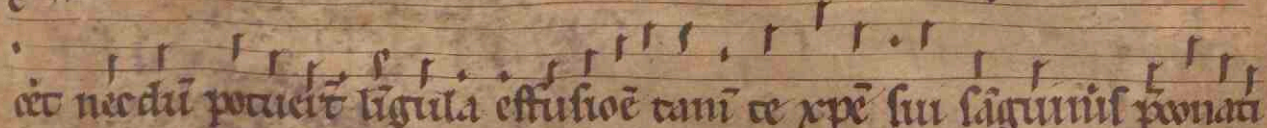 cet necdū potuer̄t līgula effusiōe tam̄ te xp̄e sui sāguinis p̄conati